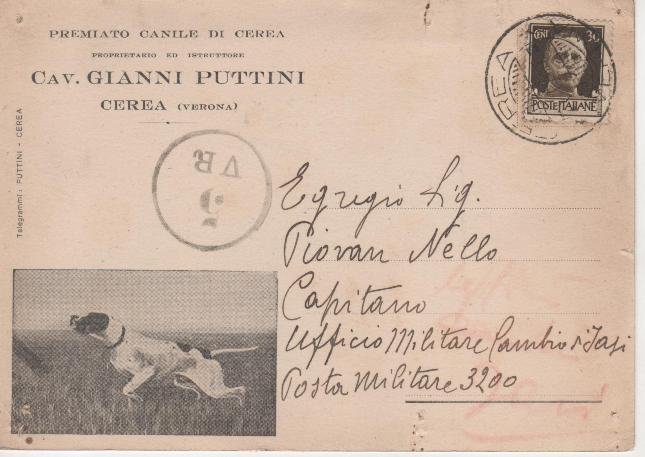 PREMIATO CANILE DI CEREA
PROPRIETARIO ED ISTRUTTORE
CAV. GIANNI PUTTINI
CEREA (VERONA)
Telegrammi: PUTTINI - CEREA
CENT 30
POSTE ITALIANE
CEREA
2
VR
Egregio Sig.
Piovan Nello
Capitano
Ufficio Militare Cambio
Posta Militare 3200